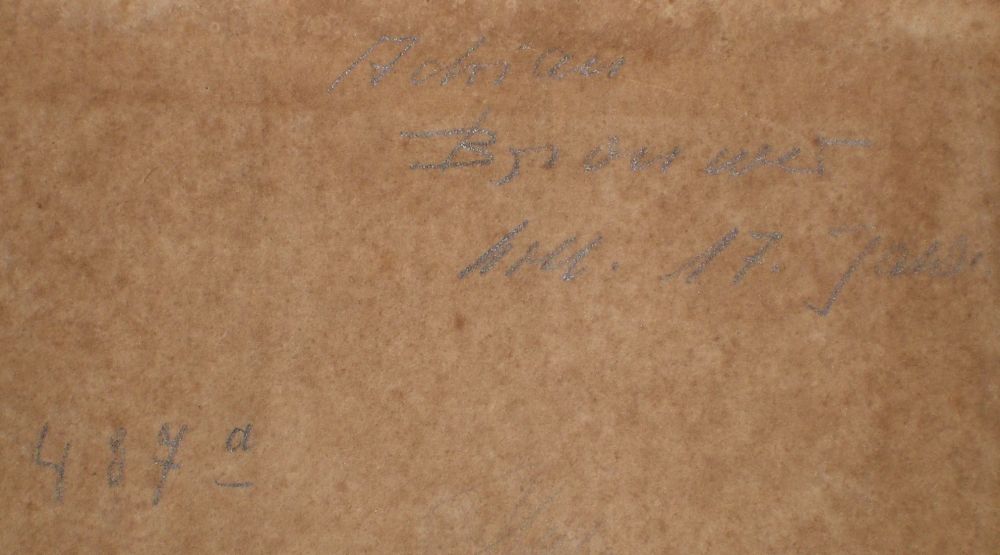 Adrian
Brouwer
holl. 17. Jahr.
487 a